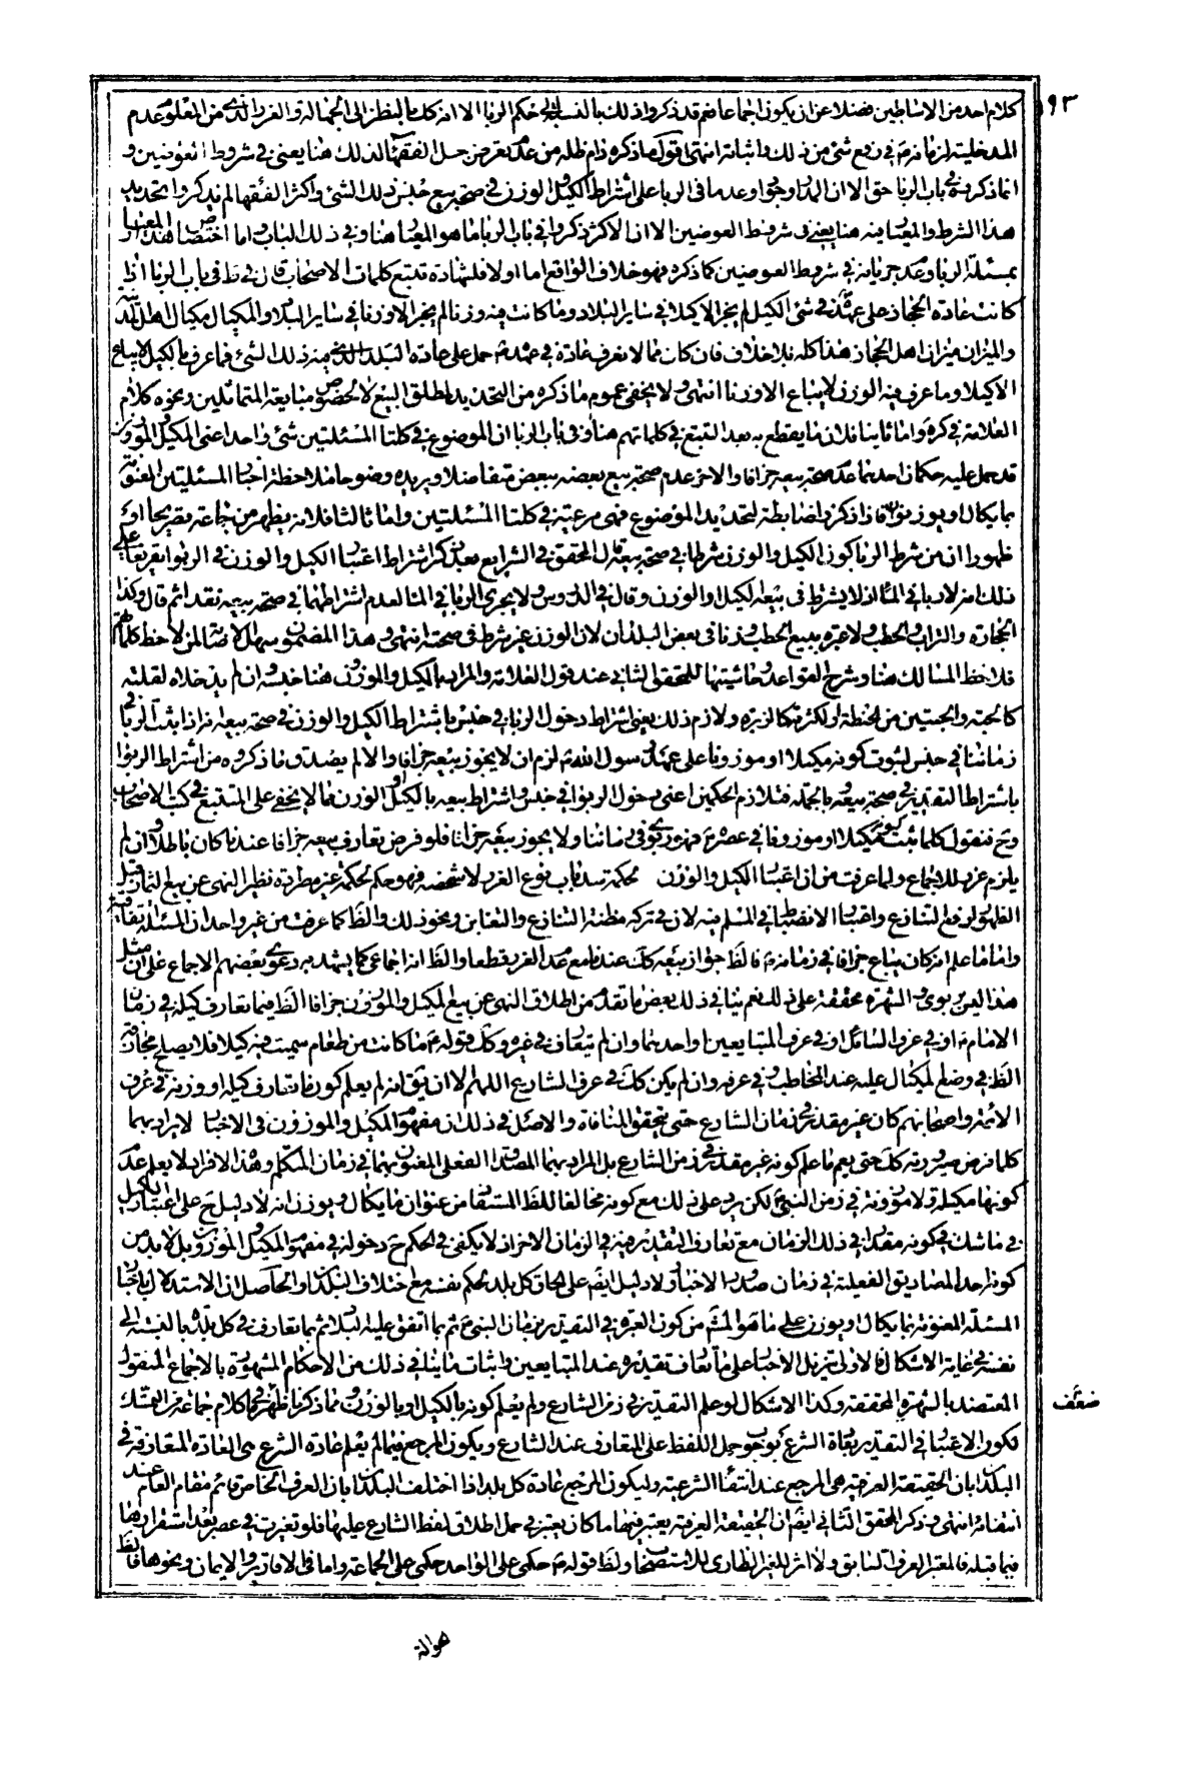 ١٩٣
كلام احد من الاساطين فضلا عن ان يكون اجماعا نعم قد ذكروا ذلك بالنسبة الى حكم الربا لا انه كك بالنظر الى الجهالة والغرر الذى من المعلوم عدم
المدخلية لزمانه م فى رفع شئ من ذلك واثباته انتهى اقول ما ذكره دام ظله من عدم تعرض جل الفقهاء لذلك هنا يعنى فى شروط العوضين و
انما ذكروه فى باب الربا حق الا ان المدار وجودا وعدما فى الربا على اشتراط الكيل والوزن فى صحة بيع جنس ذلك الشئ واكثر الفقهاء لم يذكروا تحديد
هذا الشرط والمعيار فيه هنا يعنى فى شروط العوضين الا ان الاكثر ذكروا فى باب الربا ما هو المعيار هنا وفى ذلك الباب واما اختصاص هذا المعيار
بمسئلة الربا وعدم جريانه فى شروط العوضين كما ذكره فهو خلاف الواقع اما اولا فلشهادة تتبع كلمات الاصحاب قال فى ط فى باب الربا اذا
كانت عادة الحجاز على عهده فى شئ الكيل لم يجز الا كيلا فى ساير البلاد وما كانت فيه وزنا لم يجز الا وزنا فى ساير البلاد والمكيال مكيال اهل المدينة
والميزان ميزان اهل الحجاز هذا كله بلا خلاف فان كان مما لا تعرف عادة فى عهده م حمل على عادة البلد الذى فيه ذلك الشئ فما عرف بالكيل لا يباع
الا كيلا وما عرف فيه الوزن لا يباع الا وزنا انتهى ولا يخفى عموم ما ذكره من التحديد لمطلق البيع لا لخصوص مبايعة المتماثلين ونحوه كلام
العلامة فى كره واما ثانيا فلان ما يقطع به بعد التتبع فى كلماتهم هنا وفى باب الربا ان الموضوع فى كلتا المسئلتين شئ واحد اعنى المكيل والموزون
قد حمل عليه حكمان احدهما عدم صحة بيعه جزافا والاخر عدم صحة بيع بعضه ببعض متفاضلا ويزيده وضوحا ملاحظة اخبار المسئلتين المعنونة
بما يكال او يوزن فاذا ذكروا ضابطة لتحديد الموضوع فهى مرعية فى كلتا المسئلتين واما ثالثا فلانه يظهر من جماعة تصريحا او
ظهورا ان من شرط الربا كون الكيل والوزن شرطا فى صحة بيعه قال المحقق فى الشرايع بعد ذكر اشتراط اعتبار الكيل والوزن فى الربوا تفريعا على
ذلك انه لا ربا فى الماء اذ لا يشترط فى بيعه الكيل او الوزن وقال فى الدروس ولا يجرى الربا فى الماء لعدم اشتراطهما فى صحة بيعه نقدا ثم قال وكذا
الحجارة والتراب والحطب ولا عبرة ببيع الحطب وزنا فى بعض البلدان لان الوزن غير شرط فى صحته انتهى وهذا المضمون سهل الاصابة لمن لاحظ كلماتهم
فلاحظ المسالك هنا وشرح القواعد وحاشيتها للمحقق الثانى عند قول العلامة والمراد بالمكيل والموزون هنا جنسه وان لم يدخلاه لقلته
كالحبة والحبتين من الحنطة او لكثرته كالزبرة ولازم ذلك يعنى اشتراط دخول الربا فى جنس باشتراط الكيل والوزن فى صحة بيعه انه اذا ثبت الربا فى
زماننا فى جنس لثبوت كونه مكيلا او موزونا على عهد رسول الله ص لزم ان لا يجوز بيعه جزافا والا لم يصدق ما ذكروه من اشتراط الربوا
باشتراط التقدير فى صحة بيعه وبالجملة فتلازم الحكمين اعنى دخول الربوا فى جنس واشتراط بيعه بالكيل او الوزن مما لا يخفى على المتتبع فى كتب الاصحاب
وح فنقول كلما ثبت كونه مكيلا او موزونا فى عصره م فهو ربوى فى زماننا ولا يجوز بيعه جزافا فلو فرض تعارف بيعه جزافا عندنا كان باطلا وان لم
يلزم غرر للاجماع ولما عرفت من ان اعتبار الكيل والوزن لحكمة سد باب نوع الغرر لا شخصه فهو حكم لحكمة غير مطردة نظير النهى عن بيع الثمار قبل
الظهور لرفع التنازع واعتبار الانضباط فى المسلم فيه لان فى تركه مظنة التنازع والتغابن ونحو ذلك والظ كما عرفت من غير واحد ان المسئلة اتفاقية
واما ما علم انه كان يباع جزافا فى زمانه م فالظ جواز بيعه كك عندنا مع عدم الغرر قطعا والظ انه اجماعى كما يشهد به دعوى بعضهم الاجماع على ان مثل
هذا ليس بربوى والشهرة محققة على ذلك نعم ينافى ذلك بعض ما تقدم من اطلاق النهى عن بيع المكيل والموزون جزافا الظ فيما تعارف كيله فى زمان
الامام م او فى عرف السائل او فى عرف المتبايعين او احدهما وان لم يتعارف فى غيره وكك قوله م ما كان من طعام سميت فيه كيلا فلا يصلح مجازفة
الظ فى وضع المكيال عليه عند المخاطب وفى عرفه وان لم يكن كك فى عرف الشارع اللهم الا ان يق انه لم يعلم كون ما تعارف كيله او وزنه فى عرف
الائمة واصحابهم كان غير مقدر فى زمان الشارع حتى يتحقق المنافاة والاصل فى ذلك ان مفهوم المكيل والموزون فى الاخبار لا يراد بهما
كلما فرض صيرورته كك حتى يعم ما علم كونه غير مقدر فى زمن الشارع بل المراد بهما المصداق الفعلى المعنون بهما فى زمان المتكلم وهذه الافراد لا يعلم عدم
كونها مكيلة ولا موزونة فى زمن النبى ص لكن يرد على ذلك مع كونه مخالفا للظ المستفاد من عنوان ما يكال ويوزن انه لا دليل ح على اعتبار الكيل
فى ما شك فى كونه مقدرا فى ذلك الزمان مع تعارف التقدير فيه فى الزمان الاخر اذ لا يكفى فى الحكم ح دخوله فى مفهوم المكيل والموزون بل لابد من
كونه احد المصاديق الفعلية فى زمان صدور الاخبار ولا دليل ايضا على الحاق كل بلد بحكم نفسه مع اختلاف البلدان والحاصل ان الاستدلال باخبار
المسئلة المعنونة بما يكال او يوزن على ما هو المشهور من كون العبرة فى التقدير بزمان النبى ص ثم بما اتفق عليه البلاد ثم بما تعارف فى كل بلدة بالنسبة الى
نفسه فى غاية الاشكال فالاولى تنزيل الاخبار على ما تعارف تقديره عند المتبايعين واثبات ما ينافى ذلك من الاحكام المشهورة بالاجماع المنقول
المعتضد بالشهرة المحققة وكذا الاشكال لو علم التقدير فى زمن الشارع ولم يعلم كونه بالكيل او بالوزن ومما ذكرنا ظهر ما فى كلام جماعة من التمسك
لكون الاعتبار فى التقدير بعادة الشرع بوجوب حمل اللفظ على المتعارف عند الشارع ويكون المرجع فيما لم يعلم عادة الشرع هى العادة المتعارفة فى
البلدان بان الحقيقة العرفية هى المرجع عند انتفاء الشرعية وليكون المرجع عادة كل بلد اذا اختلف البلدان بان العرف الخاص قائم مقام العام عند
انتفائه انتهى وذكر المحقق الثانى ايضا ان الحقيقة العرفية يعتبر فيها ما كان يعتبر فى حمل اطلاق لفظ الشارع عليها فلو تغيرت فى عصر بعد استقرارها
فيما قبله فالمعتبر العرف السابق ولا اثر للتغير الطارى للاستصحاب ولظ قوله م حكمى على الواحد حكمى على الجماعة واما فى الاقارير والايمان ونحوها فالظ
ضعف
حوالة